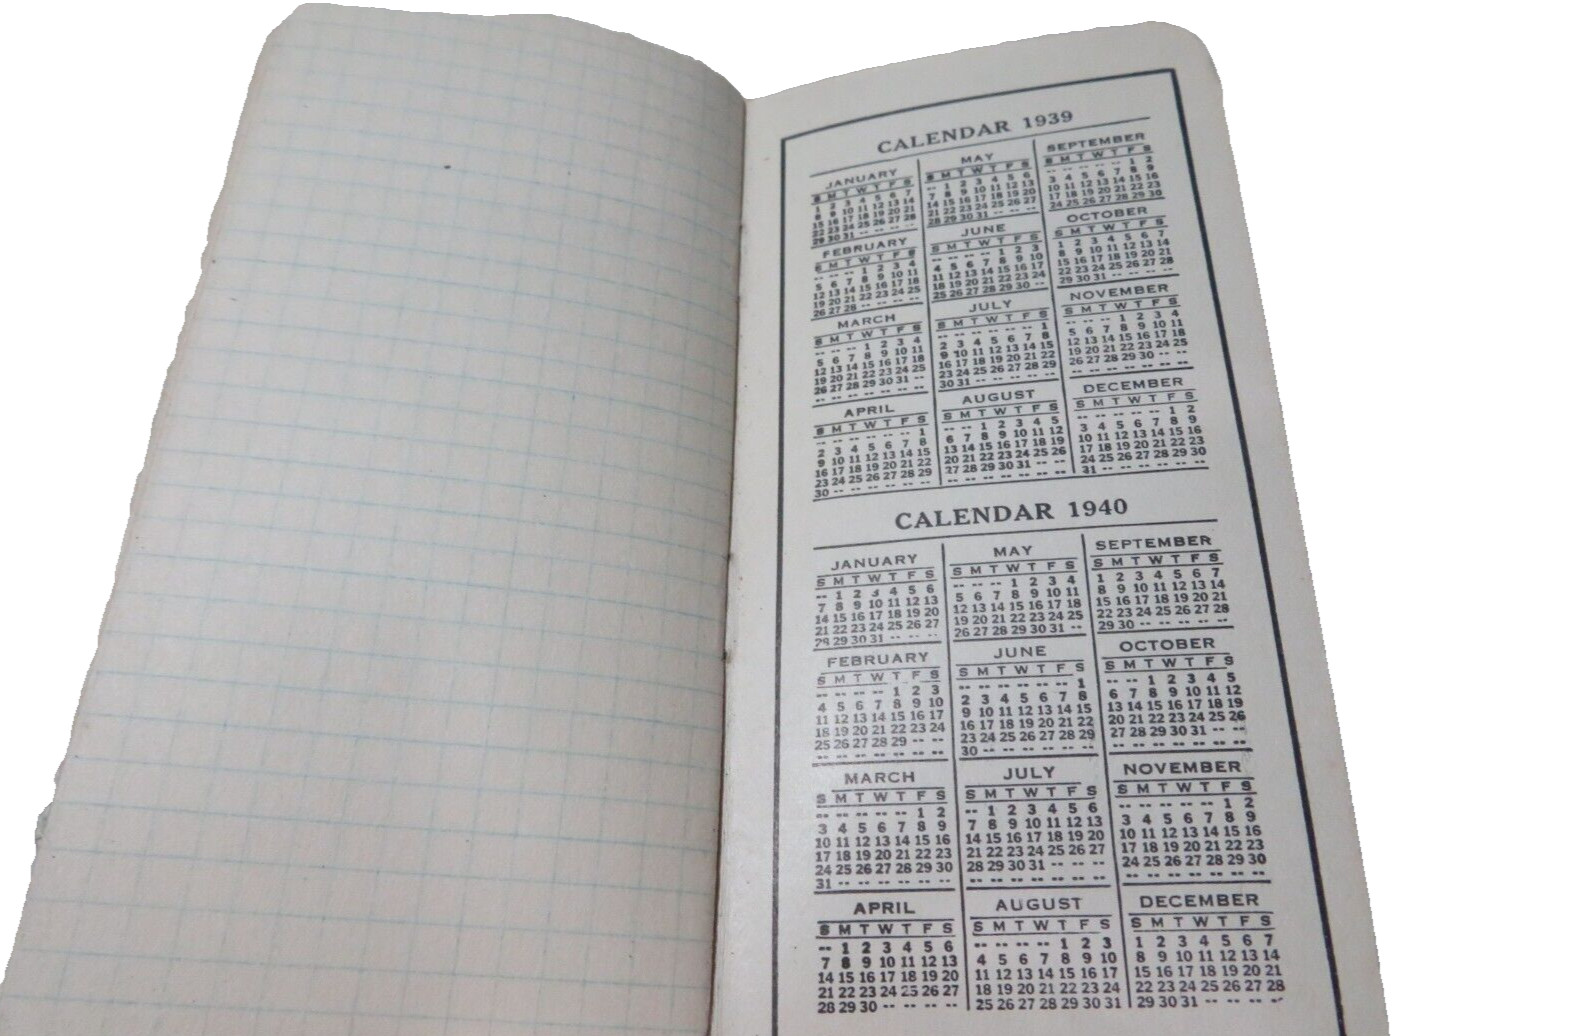 CALENDAR 1939
JANUARY
S M T W T F S
1 2 3 4 5 6 7
8 9 10 11 12 13 14
15 16 17 18 19 20 21
22 23 24 25 26 27 28
29 30 31 -- -- -- --
FEBRUARY
S M T W T F S
-- -- -- 1 2 3 4
5 6 7 8 9 10 11
12 13 14 15 16 17 18
19 20 21 22 23 24 25
26 27 28 -- -- -- --
MARCH
S M T W T F S
-- -- -- 1 2 3 4
5 6 7 8 9 10 11
12 13 14 15 16 17 18
19 20 21 22 23 24 25
26 27 28 29 30 31 --
-- -- -- -- -- -- --
APRIL
S M T W T F S
-- -- -- -- -- -- 1
2 3 4 5 6 7 8
9 10 11 12 13 14 15
16 17 18 19 20 21 22
23 24 25 26 27 28 29
30 -- -- -- -- -- --
MAY
S M T W T F S
-- 1 2 3 4 5 6
7 8 9 10 11 12 13
14 15 16 17 18 19 20
21 22 23 24 25 26 27
28 29 30 31 -- -- --
JUNE
S M T W T F S
-- -- -- -- 1 2 3
4 5 6 7 8 9 10
11 12 13 14 15 16 17
18 19 20 21 22 23 24
25 26 27 28 29 30 --
JULY
S M T W T F S
-- -- -- -- -- -- 1
2 3 4 5 6 7 8
9 10 11 12 13 14 15
16 17 18 19 20 21 22
23 24 25 26 27 28 29
30 31 -- -- -- -- --
AUGUST
S M T W T F S
-- -- 1 2 3 4 5
6 7 8 9 10 11 12
13 14 15 16 17 18 19
20 21 22 23 24 25 26
27 28 29 30 31 -- --
SEPTEMBER
S M T W T F S
-- -- -- -- -- 1 2
3 4 5 6 7 8 9
10 11 12 13 14 15 16
17 18 19 20 21 22 23
24 25 26 27 28 29 30
OCTOBER
S M T W T F S
1 2 3 4 5 6 7
8 9 10 11 12 13 14
15 16 17 18 19 20 21
22 23 24 25 26 27 28
29 30 31 -- -- -- --
NOVEMBER
S M T W T F S
-- -- -- 1 2 3 4
5 6 7 8 9 10 11
12 13 14 15 16 17 18
19 20 21 22 23 24 25
26 27 28 29 30 -- --
-- -- -- -- -- -- --
DECEMBER
S M T W T F S
-- -- -- -- -- 1 2
3 4 5 6 7 8 9
10 11 12 13 14 15 16
17 18 19 20 21 22 23
24 25 26 27 28 29 30
31 -- -- -- -- -- --
CALENDAR 1940
JANUARY
S M T W T F S
-- 1 2 3 4 5 6
7 8 9 10 11 12 13
14 15 16 17 18 19 20
21 22 23 24 25 26 27
28 29 30 31 -- -- --
FEBRUARY
S M T W T F S
-- -- -- -- 1 2 3
4 5 6 7 8 9 10
11 12 13 14 15 16 17
18 19 20 21 22 23 24
25 26 27 28 29 -- --
-- -- -- -- -- -- --
MARCH
S M T W T F S
-- -- -- -- -- 1 2
3 4 5 6 7 8 9
10 11 12 13 14 15 16
17 18 19 20 21 22 23
24 25 26 27 28 29 30
31 -- -- -- -- -- --
APRIL
S M T W T F S
-- 1 2 3 4 5 6
7 8 9 10 11 12 13
14 15 16 17 18 19 20
21 22 23 24 25 26 27
28 29 30 -- -- -- --
MAY
S M T W T F S
-- -- -- 1 2 3 4
5 6 7 8 9 10 11
12 13 14 15 16 17 18
19 20 21 22 23 24 25
26 27 28 29 30 31 --
JUNE
S M T W T F S
-- -- -- -- -- -- 1
2 3 4 5 6 7 8
9 10 11 12 13 14 15
16 17 18 19 20 21 22
23 24 25 26 27 28 29
30 -- -- -- -- -- --
JULY
S M T W T F S
-- 1 2 3 4 5 6
7 8 9 10 11 12 13
14 15 16 17 18 19 20
21 22 23 24 25 26 27
28 29 30 31 -- -- --
-- -- -- -- -- -- --
AUGUST
S M T W T F S
-- -- -- -- 1 2 3
4 5 6 7 8 9 10
11 12 13 14 15 16 17
18 19 20 21 22 23 24
25 26 27 28 29 30 31
SEPTEMBER
S M T W T F S
1 2 3 4 5 6 7
8 9 10 11 12 13 14
15 16 17 18 19 20 21
22 23 24 25 26 27 28
29 30 -- -- -- -- --
OCTOBER
S M T W T F S
-- -- 1 2 3 4 5
6 7 8 9 10 11 12
13 14 15 16 17 18 19
20 21 22 23 24 25 26
27 28 29 30 31 -- --
-- -- -- -- -- -- --
NOVEMBER
S M T W T F S
-- -- -- -- -- 1 2
3 4 5 6 7 8 9
10 11 12 13 14 15 16
17 18 19 20 21 22 23
24 25 26 27 28 29 30
-- -- -- -- -- -- --
DECEMBER
S M T W T F S
1 2 3 4 5 6 7
8 9 10 11 12 13 14
15 16 17 18 19 20 21
22 23 24 25 26 27 28
29 30 31 -- -- -- --